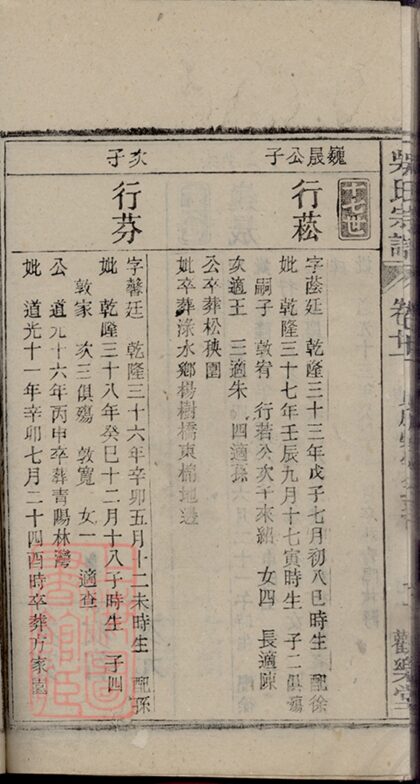 吳氏宗譜
卷廿二
觀樂堂
巍晟公子
十七世
行菘
字蔭廷 乾隆三十三年戊子七月初八巳時生 配徐
妣 乾隆三十七年壬辰九月十七寅時生 子二俱殤
嗣子 敦宥 行若公次子來紹 女四 長適陳
次適王 三適朱 四適孫
公卒葬松秧園
妣卒葬淥水鄉楊樹橋東棉地邊
次子
行芬
字馨廷 乾隆三十六年辛卯五月十二未時生 配孫
妣 乾隆三十八年癸巳十二月十八子時生 子四
敦家 次三俱殤 敦寬 女一 適查
公 道光十六年丙申卒葬青陽林灣
妣 道光十一年辛卯七月二十四酉時卒葬方家園